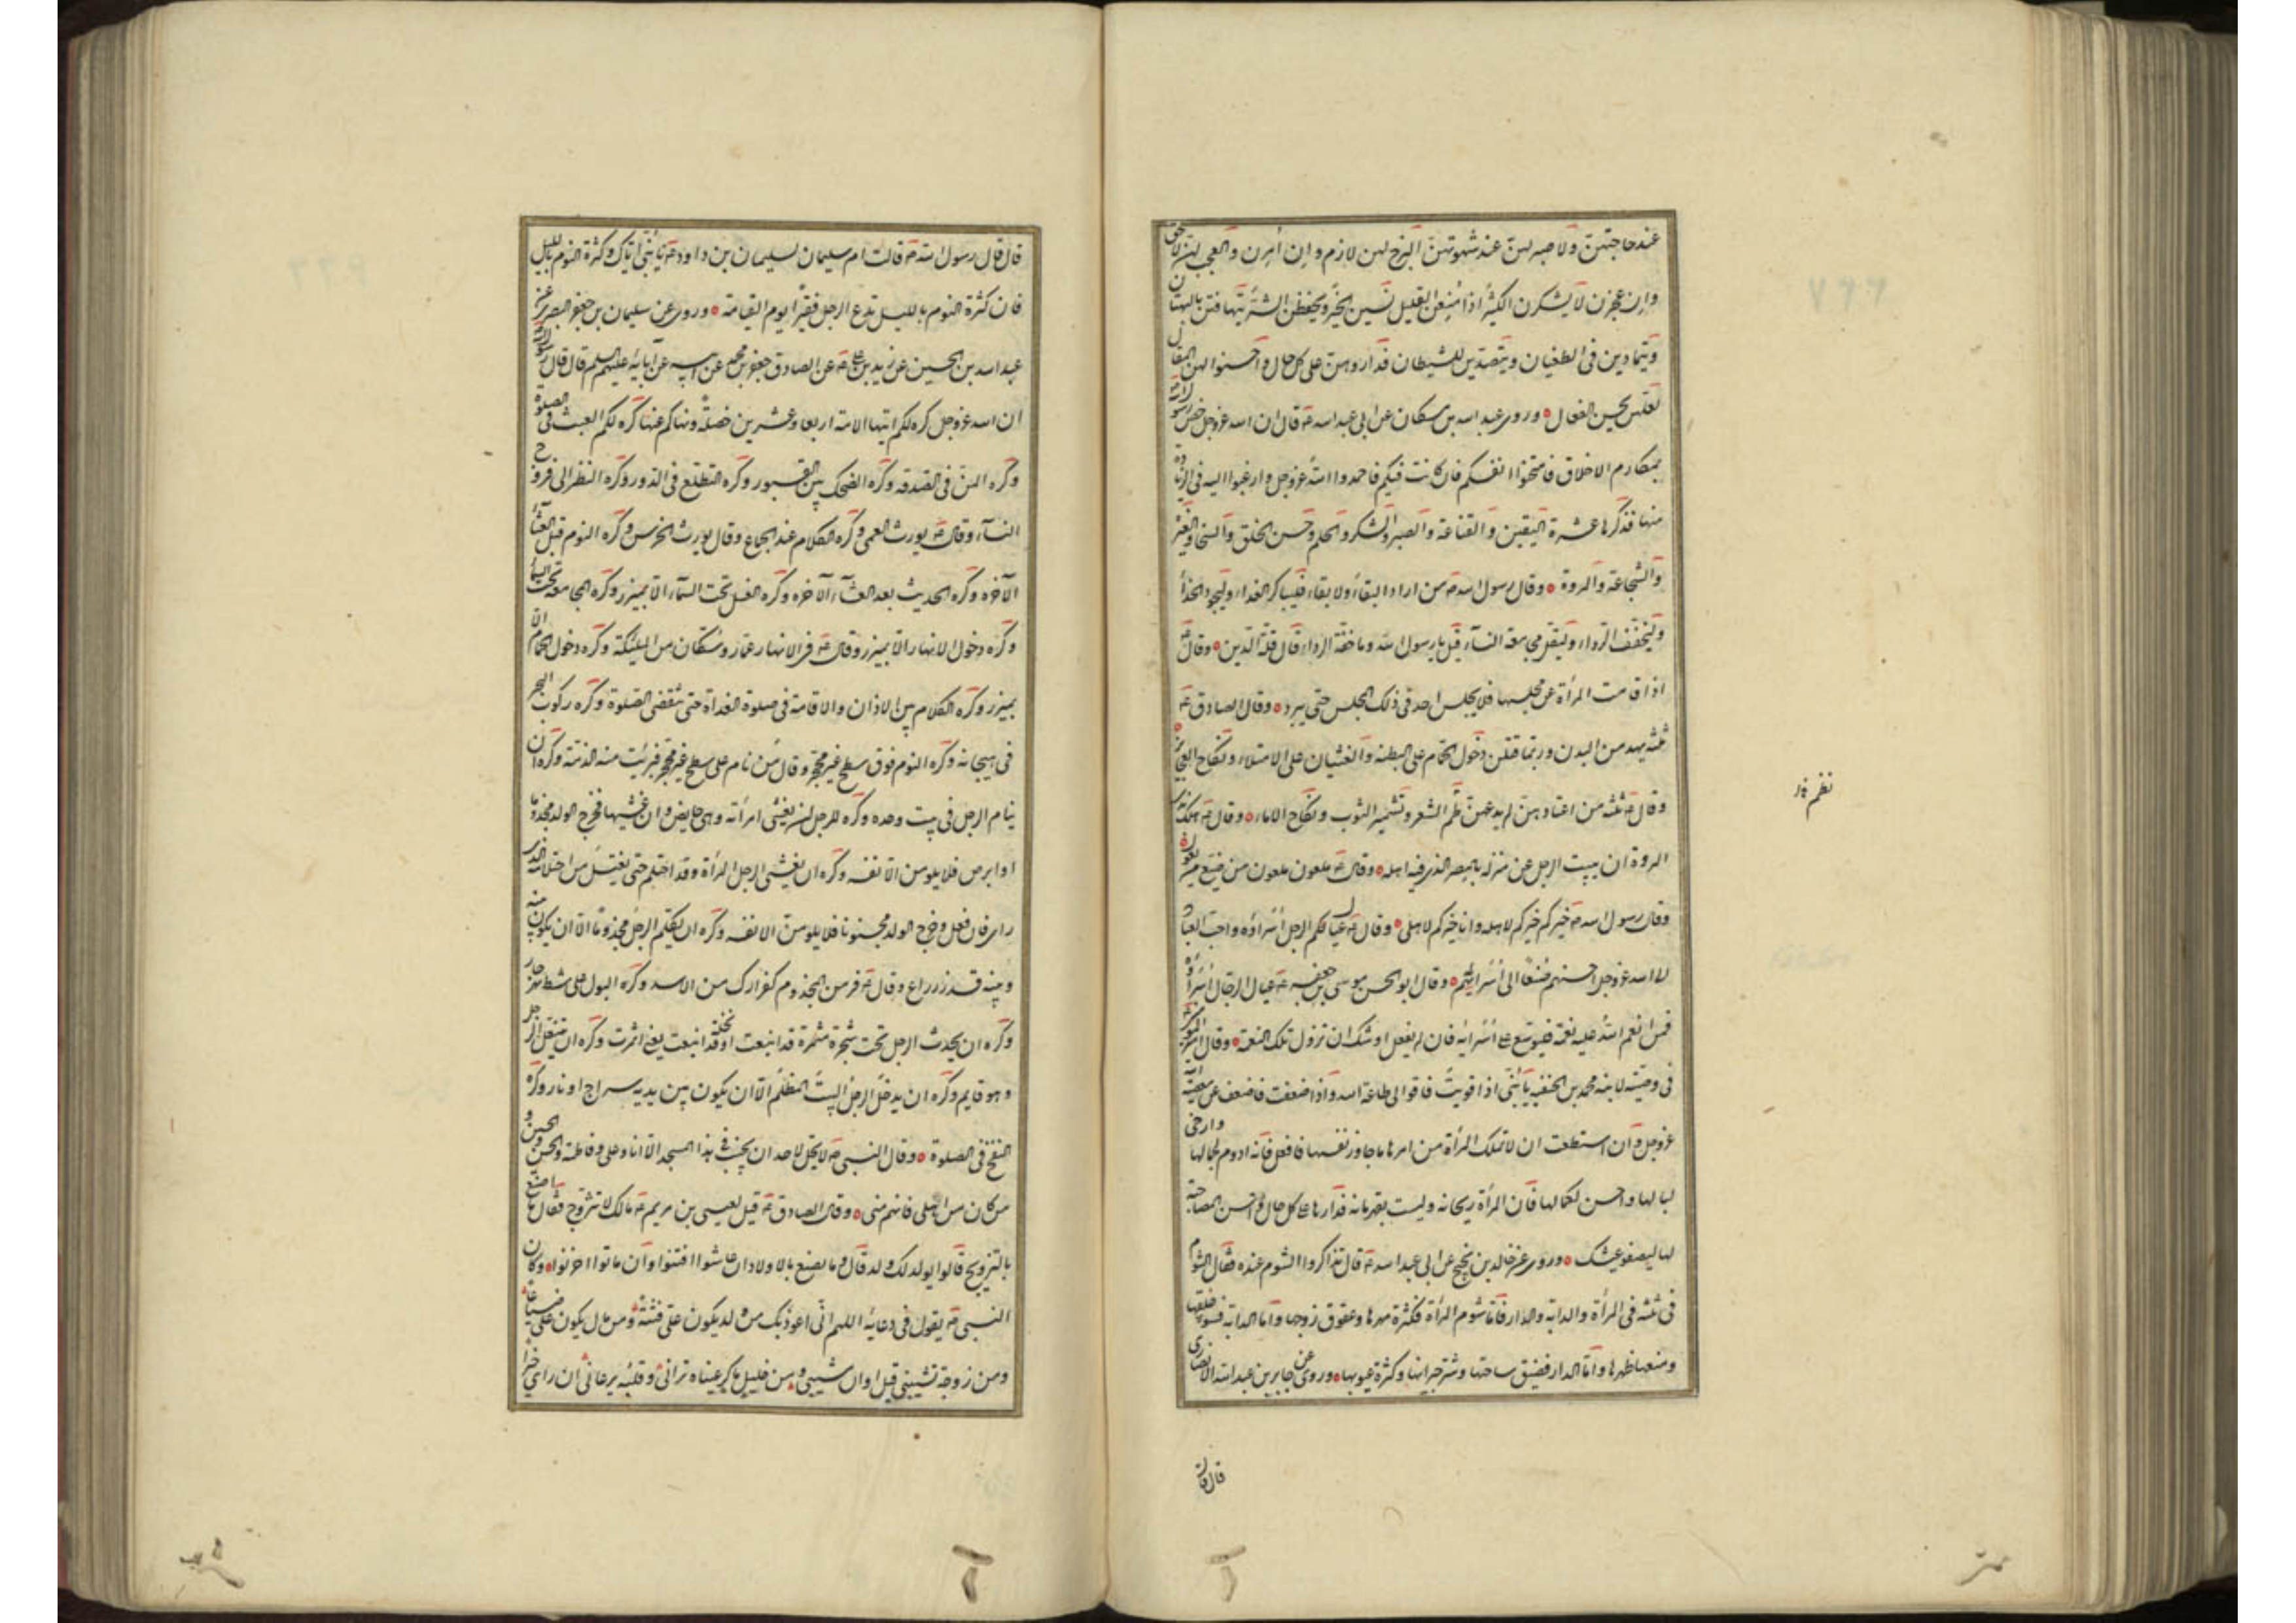 عند حاجتهن ولا صبر لهن عند شهوتهن البذخ لهن لازم وان كبرن والعجب لهن لاحق
وان عجزن لا يشكرن الكثير اذا منعن القليل ينسين الخير ويحفظن الشر يتهافتن بالبهتان
ويتمادين في الطغيان ويتصدين للشيطان فداروهن على كل حال واحسنوا لهن المقال
لعلهن يحسن الفعال وروى عبد الله بن مسكان عن ابي عبد الله ع قال ان الله عز وجل خص رسوله
بمكارم الاخلاق فامتحنوا انفسكم فان كانت فيكم فاحمدوا الله عز وجل وارغبوا اليه في الزيادة
منها فذكرها عشرة اليقين والقناعة والصبر والشكر والحلم وحسن الخلق والسخا والغيرة
والشجاعة والمروة وقال رسول الله ص من اراد البقاء ولا بقاء فليباكر الغداء وليجود الحذاء
وليخفف الرداء وليقل مجامعة النساء قيل يا رسول الله وما خفة الرداء قال قلة الدين وقال ع
اذا قامت المرأة عن مجلسها فلا يجلس احد في ذلك المجلس حتى يبرد وقال الصادق ع
ثلثة يهدمن البدن وربما قتلن دخول الحمام على البطنة والغشيان على الامتلاء ونكاح العجائز
وقال ع ثلثة من اعتادهن لم يدعهن طم الشعر وتشمير الثوب ونكاح الاماء وقال ع هلك بذي
المروة ان يبيت الرجل عن منزله بالمصر الذي فيه اهله وقال ع ملعون ملعون من ضيع من يعول
وقال رسول الله ص خيركم خيركم لاهله وانا خيركم لاهلي وقال ع عيال الرجل اسراؤه واحب العباد
الى الله عز وجل احسنهم صنعا الى اسرائهم وقال ابو الحسن موسى بن جعفر ع عيال الرجال اسراؤه
فمن انعم الله عليه نعمة فليوسع على اسرائه فان لم يفعل اوشك ان تزول تلك النعمة وقال امير المؤمنين
في وصيته لابنه محمد بن الحنفية يا بني اذا قويت فاقو الى طاعة الله واذا ضعفت فاضعف عن معصية الله
عز وجل وان استطعت ان لا تملك المرأة من امرها ما جاوز نفسها فافعل فانه ادوم لجمالها وارخى
لبالها واحسن لحالها فان المرأة ريحانة وليست بقهرمانة فدارها على كل حال واحسن المصاحبة
لها ليصفو عيشك وروى عن خالد بن نجيح عن ابي عبد الله ع قال تذاكروا الشوم عنده فقال الشوم
في ثلثة في المرأة والدابة والدار فاما شوم المرأة فكثرة مهرها وعقوق زوجها واما الدابة فسوء خلقها
ومنعها ظهرها واما الدار فضيق ساحتها وشر جيرانها وكثرة عيوبها وروى عن جابر بن عبد الله الانصاري
قال قال
قال قال رسول الله ص قالت ام سليمان لسليمان بن داود ع يا بني اياك وكثرة النوم بالليل
فان كثرة النوم بالليل تدع الرجل فقيرا يوم القيامة وروى عن سليمان بن جعفر البصري عن
عبد الله بن الحسين عن زيد بن علي ع عن الصادق جعفر بن محمد عن ابيه عن آبائه عليهم السلم قال قال رسول الله
ان الله عز وجل كره لكم ايتها الامة اربعا وعشرين خصلة ونهاكم عنها كره لكم العبث في الصلوة
وكره المن في الصدقة وكره الضحك بين القبور وكره التطلع في الدور وكره النظر الى فروج
النساء وقال ع يورث العمى وكره الكلام عند الجماع وقال يورث الخرس وكره النوم قبل العشاء
الآخرة وكره الحديث بعد العشاء الآخرة وكره الغسل تحت السماء الا بميزر وكره المجامعة تحت السماء
وكره دخول الانهار الا بميزر وقال ع في الانهار عمار وسكان من المليكة وكره دخول الحمام الا
بميزر وكره الكلام بين الاذان والاقامة في صلوة الغداة حتى تنقضي الصلوة وكره ركوب البحر
في هيجانه وكره النوم فوق سطح غير محجر وقال من نام على سطح غير محجر فبرئت منه الذمة وكره ان
ينام الرجل في بيت وحده وكره للرجل ان يغشى امرأته وهي حايض وان غشيها فخرج الولد مجذوما
او ابرص فلا يلومن الا نفسه وكره ان يغشى الرجل المرأة وقد احتلم حتى يغتسل من احتلامه الذي
راى فان فعل وخرج الولد مجنونا فلا يلومن الا نفسه وكره ان يكلم الرجل مجذوما الا ان يكون بينه
وبينه قدر ذراع وقال ع فر من المجذوم كفرارك من الاسد وكره البول على شط نهر جار
وكره ان يحدث الرجل تحت شجرة مثمرة قد اينعت او نخلة قد اينعت يعني اثمرت وكره ان يتنعل الرجل
وهو قايم وكره ان يدخل الرجل البيت المظلم الا ان يكون بين يديه سراج او نار وكره
النفخ في الصلوة وقال النبي ص لا يحل لاحد ان يجنب في هذا المسجد الا انا وعلي وفاطمة والحسن والحسين و
من كان من اهلي فانهم مني وقال الصادق ع قيل لعيسى بن مريم ع مالك لا تتزوج فقال ما اصنع
بالتزويج قالوا يولد لك ولد قال وما يصنع بالاولاد ان عاشوا افتنوا وان ماتوا احزنوا وكان
النبي ص يقول في دعايه اللهم اني اعوذ بك من ولد يكون علي فتنة ومن مال يكون علي ضياعا
ومن زوجة تشيبني قبل اوان مشيبي ومن خليل ماكر عيناه تراني وقلبه يرعاني ان راى خيرا